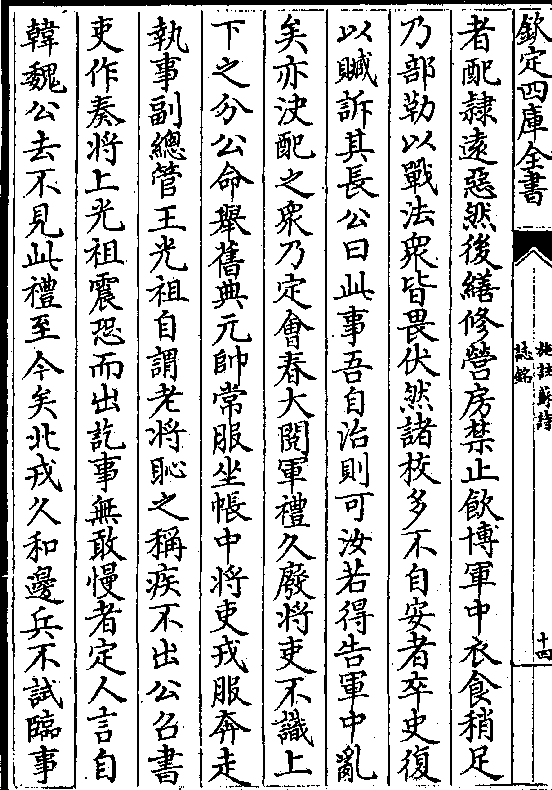 欽定四庫全書
施註蘇詩
誌銘
十四
者配隷逺惡然後繕修營房禁止飲博軍中衣食稍足
乃部勒以戰法衆皆畏伏然諸校多不自安者卒史復
以贓訴其長公曰此事吾自治則可汝若得告軍中亂
矣亦决配之衆乃定㑹春大閱軍禮久廢將吏不識上
下之分公命舉舊典元帥常服坐帳中將吏戎服奔走
執事副總管王光祖自謂老將恥之稱疾不出公召書
吏作奏將上光祖震恐而出訖事無敢慢者定人言自
韓魏公去不見此禮至今矣北戎久和邊兵不試臨事